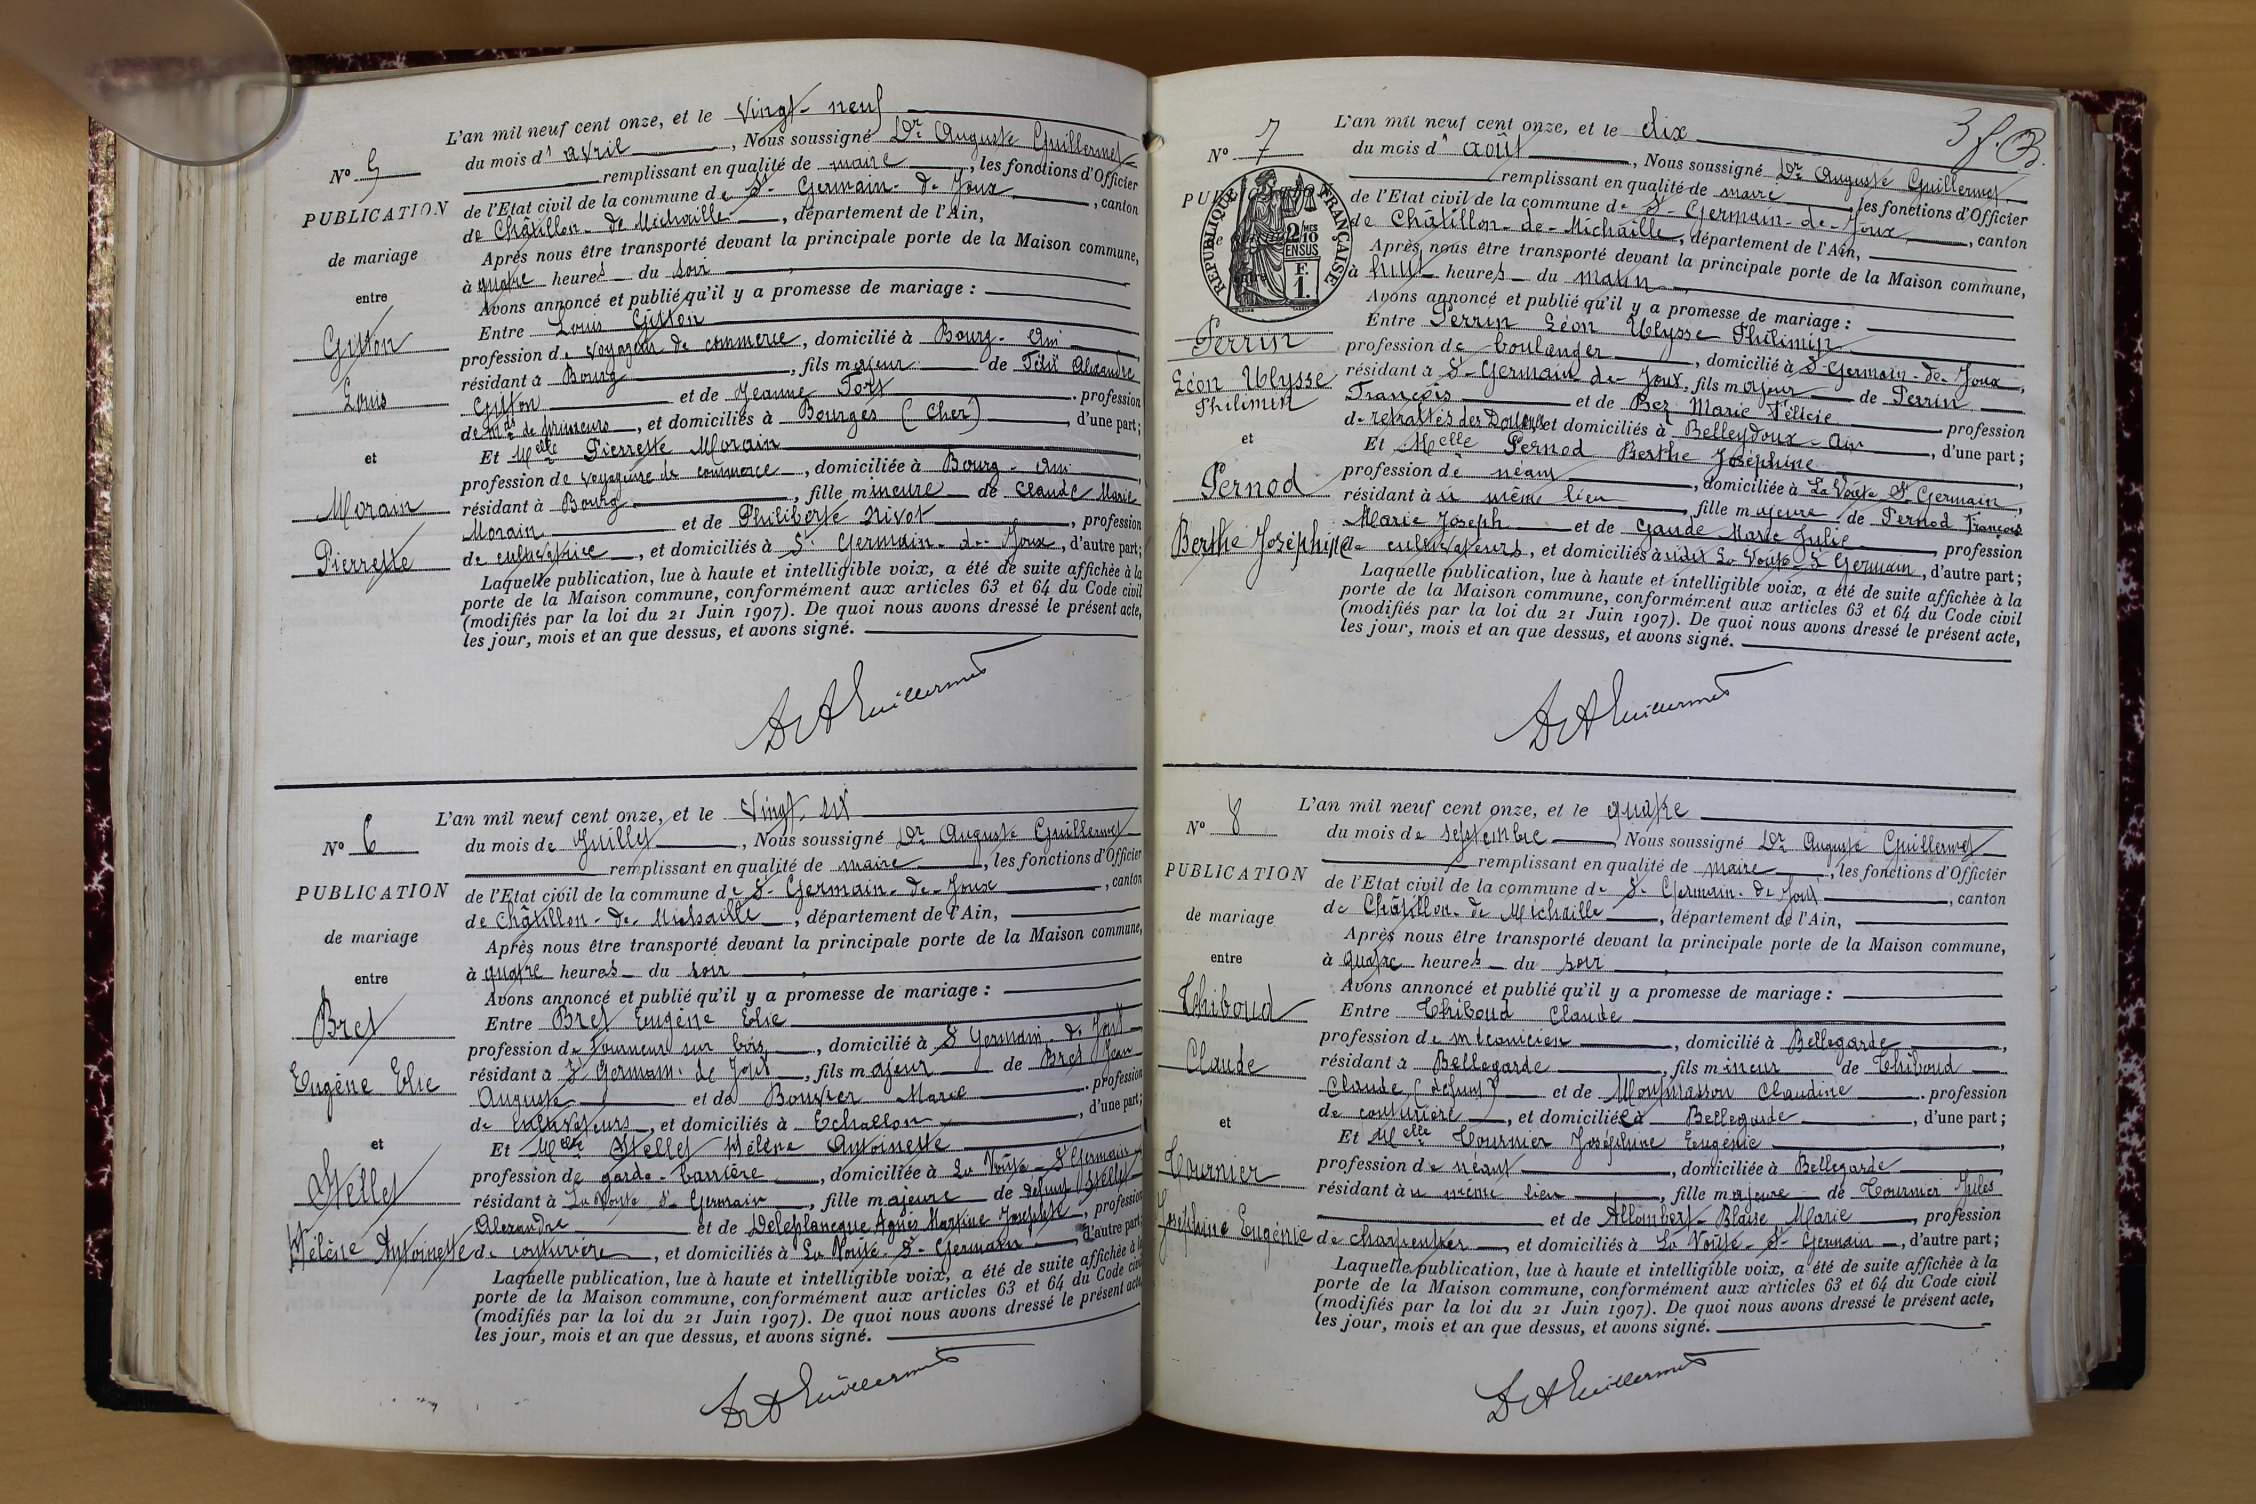 L'an mil neuf cent onze, et le vingt-neuf
Nº 5
du mois d' avril, Nous soussigné Dr Auguste Guillermet
remplissant en qualité de maire, les fonctions d'Officier
PUBLICATION
de l'Etat civil de la commune de St-Germain-de-Joux, canton
de Châtillon-de-Michaille, département de l'Ain,
de mariage
Après nous être transporté devant la principale porte de la Maison commune,
à quatre heures du soir,
entre
Avons annoncé et publié qu'il y a promesse de mariage :
Gitton
Entre Louis Gitton
profession de voyageur de commerce, domicilié à Bourg-Ain,
Louis
résidant à Bourg, fils majeur de Félix Alexandre
Gitton et de Jeanne, profession
de mds de primeurs, et domiciliés à Bourges (Cher), d'une part;
et
Et Melle Pierrette Morain,
profession de voyageuse de commerce, domiciliée à Bourg-Ain,
Morain
résidant à Bourg, fille mineure de Claude Marie
Morain et de Philiberte Nivot, profession
Pierrette
de cultivatrice, et domiciliés à St Germain-de-Joux, d'autre part;
Laquelle publication, lue à haute et intelligible voix, a été de suite affichée à la
porte de la Maison commune, conformément aux articles 63 et 64 du Code civil
(modifiés par la loi du 21 Juin 1907). De quoi nous avons dressé le présent acte,
les jour, mois et an que dessus, et avons signé.
Dr A Guillermet
L'an mil neuf cent onze, et le vingt-six
Nº 6
du mois de Juillet, Nous soussigné Dr Auguste Guillermet
remplissant en qualité de maire, les fonctions d'Officier
PUBLICATION
de l'Etat civil de la commune de St-Germain-de-Joux, canton
de Châtillon-de-Michaille, département de l'Ain,
de mariage
Après nous être transporté devant la principale porte de la Maison commune,
entre
à quatre heures du soir,
Avons annoncé et publié qu'il y a promesse de mariage :
Bret
Entre Bret Eugène Elie
profession de tourneur sur bois, domicilié à St Germain-de-Joux,
Eugène Elie
résidant à St Germain-de-Joux, fils majeur de Bret Jean
Auguste et de Bouvier Marie, profession
de cultivateurs, et domiciliés à Echallon, d'une part;
et
Et Melle Stellet Hélène Antoinette
Stellet
profession de garde-barrière, domiciliée à La Voûte-St Germain,
résidant à La Voûte St-Germain, fille majeure de defunt Stellet
Alexandre et de Deleplancque Agnès Martine Josephte, profession
Hélène Antoinette
de couturière, et domiciliés à La Voûte-St-Germain, d'autre part;
Laquelle publication, lue à haute et intelligible voix, a été de suite affichée à la
porte de la Maison commune, conformément aux articles 63 et 64 du Code civil
(modifiés par la loi du 21 Juin 1907). De quoi nous avons dressé le présent acte,
les jour, mois et an que dessus, et avons signé.
Dr A Guillermet
3 f. B.
L'an mil neuf cent onze, et le dix
Nº 7
du mois d' août, Nous soussigné Dr Auguste Guillermet,
remplissant en qualité de maire les fonctions d'Officier
PU
de l'Etat civil de la commune de St-Germain-de-Joux, canton
de Châtillon-de-Michaille, département de l'Ain,
RÉPUBLIQUE FRANÇAISE
2/10 MES
EN SUS
F.
1.
de
Après nous être transporté devant la principale porte de la Maison commune,
entre
à huit heures du matin
Avons annoncé et publié qu'il y a promesse de mariage :
Perrin
Entre Perrin Léon Ulysse Philimin
profession de boulanger, domicilié à St-Germain-de-Joux,
Léon Ulysse
Philimin
résidant à St-Germain-de-Joux, fils majeur de Perrin
François et de Bez Marie Félicie, profession
de retraités des Douanes et domiciliés à Belleydoux-Ain, d'une part;
et
Et Melle Pernod Berthe Joséphine,
profession de néant, domiciliée à La Voûte St Germain,
Pernod
résidant à u même lieu, fille majeure de Pernod François
Marie Joseph et de Gaude Marie Julie, profession
Berthe Joséphine
de cultivateurs, et domiciliés à udit La Voûte-St Germain, d'autre part;
Laquelle publication, lue à haute et intelligible voix, a été de suite affichée à la
porte de la Maison commune, conformément aux articles 63 et 64 du Code civil
(modifiés par la loi du 21 Juin 1907). De quoi nous avons dressé le présent acte,
les jour, mois et an que dessus, et avons signé.
Dr A Guillermet
L'an mil neuf cent onze, et le quatre
Nº 8
du mois de septembre, Nous soussigné Dr Auguste Guillermet
remplissant en qualité de maire, les fonctions d'Officier
PUBLICATION
de l'Etat civil de la commune de St-Germain-de-Joux, canton
de Châtillon-de Michaille, département de l'Ain,
de mariage
Après nous être transporté devant la principale porte de la Maison commune,
entre
à quatre heures du soir,
Avons annoncé et publié qu'il y a promesse de mariage :
Thiboud
Entre Thiboud Claude
profession de mécanicien, domicilié à Bellegarde,
Claude
résidant à Bellegarde, fils mineur de Thiboud
Claude (defunt) et de Montmasson Claudine, profession
de couturière, et domiciliée à Bellegarde, d'une part;
et
Et Melle Tournier Joséphine Eugénie,
Tournier
profession de néant, domiciliée à Bellegarde,
résidant à u même lieu, fille majeure de Tournier Jules
et de Allombert-Blaise Marie, profession
Joséphine Eugénie
de charpentier, et domiciliés à La Voûte-St-Germain, d'autre part;
Laquelle publication, lue à haute et intelligible voix, a été de suite affichée à la
porte de la Maison commune, conformément aux articles 63 et 64 du Code civil
(modifiés par la loi du 21 Juin 1907). De quoi nous avons dressé le présent acte,
les jour, mois et an que dessus, et avons signé.
Dr A Guillermet